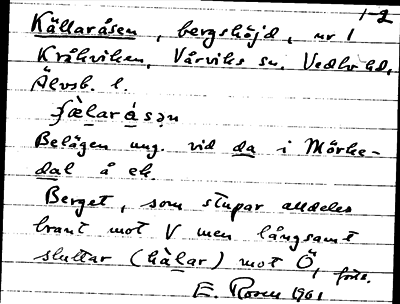 1-2
Källaråsen, bergshöjd, nr 1
Kråkviken, Vårviks sn, Vedbo hd,
Älvsb. l.
Belägen ung. vid da i Mörke-
dal å ek.
Berget, som stupar alldeles
brant mot V men långsamt
sluttar (hàlar) mot Ö, forts.
E. Rosen 1961